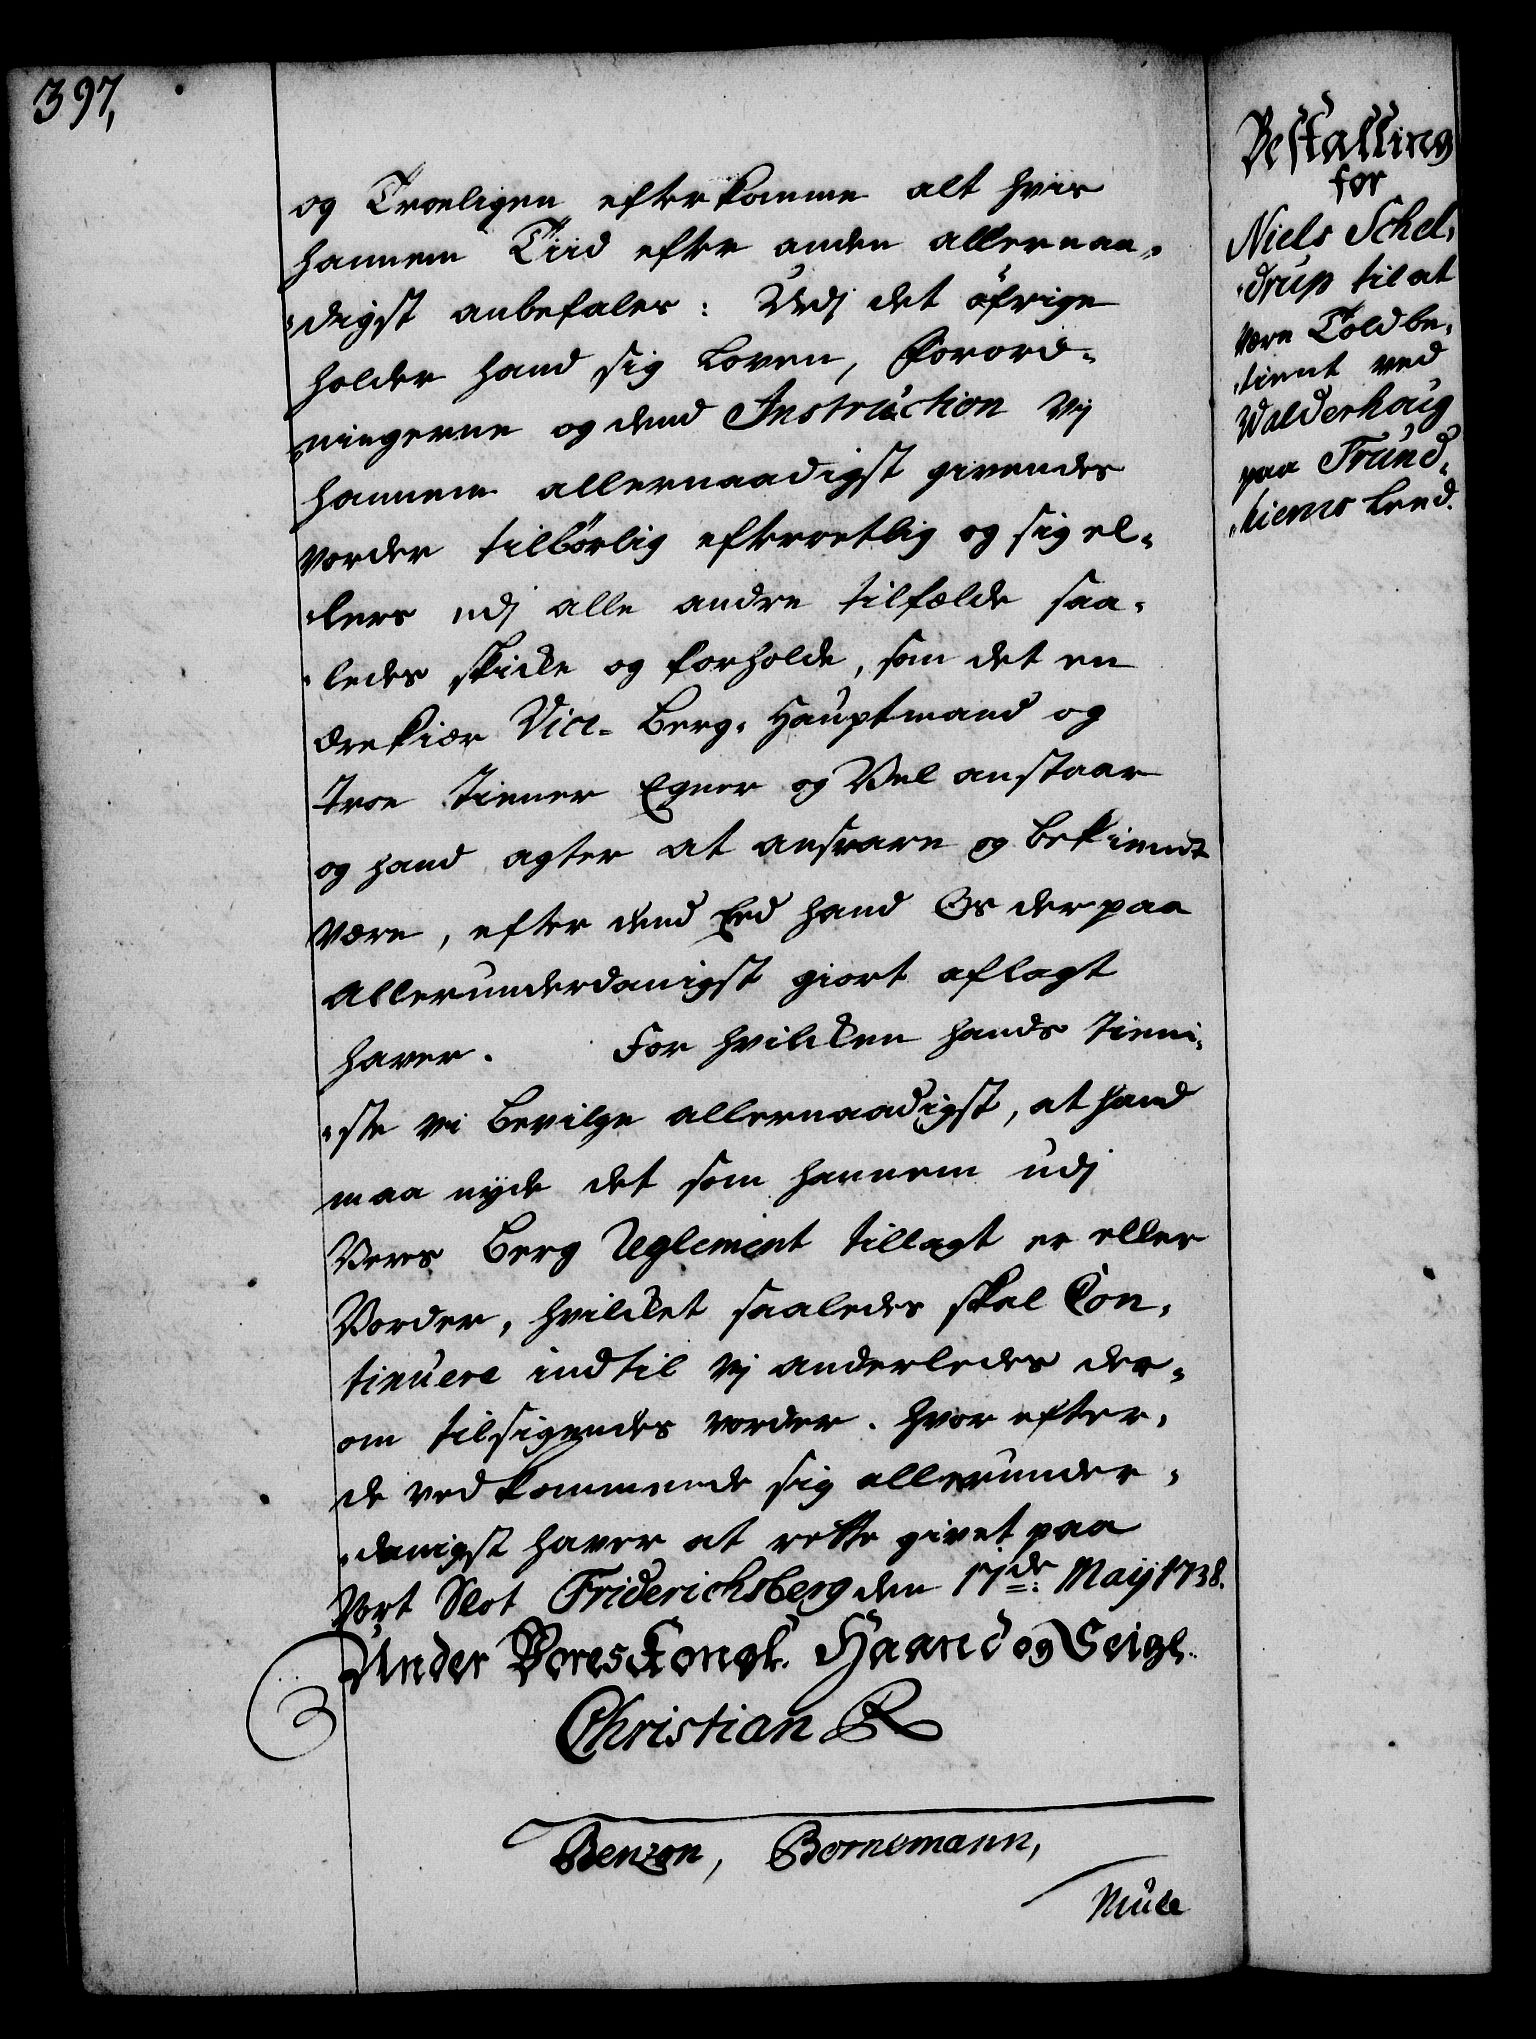 397,
og Troeligen efterkomme alt hvis
hannem Tiid efter anden allernaa„
„digst anbefales: Udj det öfrige
holder hand sig Loven, Forord„
„ningerne og dend Instruction Vj
hannem allernaadigst givendes
vorder tilbörlig efterretlig og sig el„
„lers udj alle andre tilfælde saa„
„ledes skicke og forholde, som det en
ærekiær Vice-Berg-Hauptmand og
troe Tiener Egner og Vel anstaar
og hand agter at ansvare og bekiendt
være, efter dend Eed hand Os derpaa
allerunderdanigst giort aflagt
haver. For hvilcken hands tieni„
„ste vi bevilge allernaadigst, at hand
maa nyde det som hannem udj
Vores Berg Reglement tillagt er eller
Vorder, hvilcket saaledes skal Con„
tinuere indtil Vj anderledes der„
om tilsigendes vorder. Hvorefter
de vedkommende sig allerunder„
„danigst haver at rette givet paa
Vort Slot Friderichsberg den 17de Maij 1738.
Under Vores Kongl. Haand og Seigl.
Christian R
Benzon, Bornemann,
Müle
Bestalling
for
Niels Schel„
„drup til at
være Toldbe„
„tient ved
Walderhaug
paa Trund„
„hiems Leed.